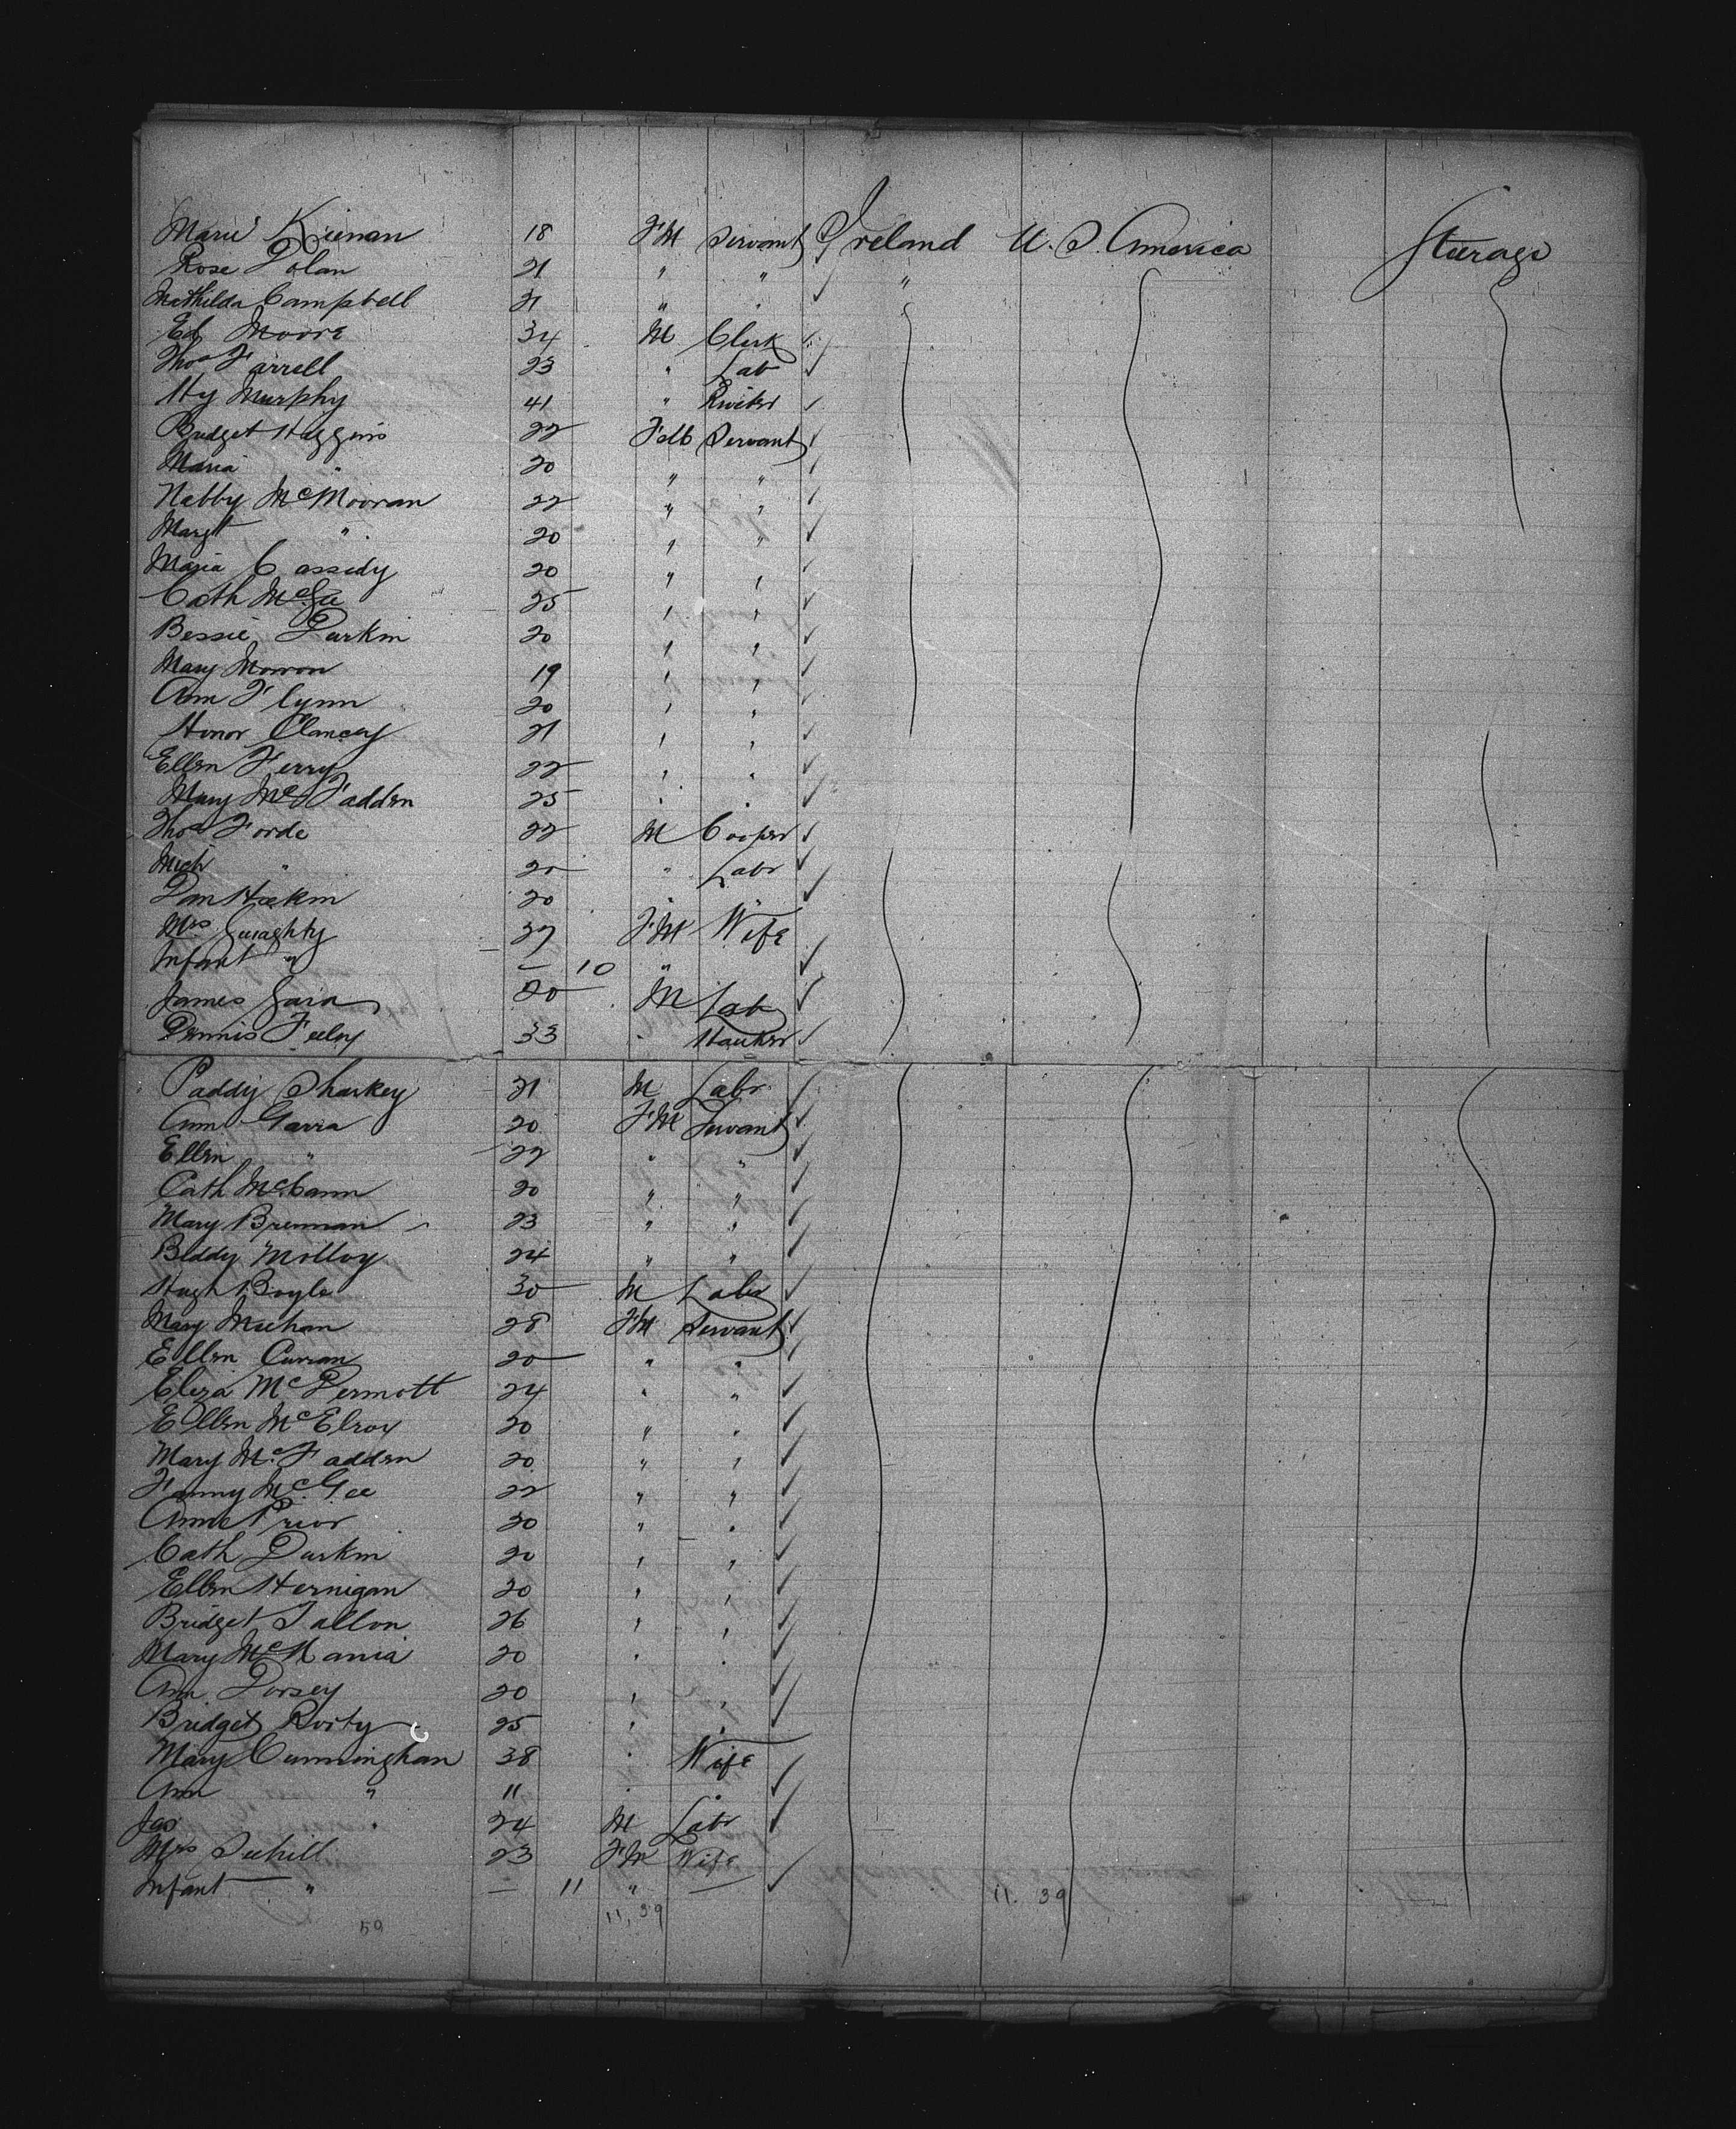 Marie Kiernan 18 FM Servant Ireland U. S. America Steerage
Rose Dolan 21 " " "
Mathilda Campbell 21 " "
Ed Moore 34 M Clerk
Thos Farrell 23 " Lab
Hy Murphy 41 " Riveter
Bridget Higgins 22 FM Servant
Maria " 20 " "
Nabby McMorran 22 " "
Margt " 20 " "
Maria Cassidy 20 " "
Cath McGee 25 " "
Bessie Durkin 20 " "
Mary Morron 19 " "
Ann Flynn 20 " "
Honor Clancey 21 " "
Ellen Ferry 22 " "
Mary McFadden 25 " "
Thos Forde 22 M Cooper
Mich " 20 " Labr
Dan 20 " "
Mrs Geraghty 37 FM Wife
Infant " – 10 "
James 20 M Lab
Dennis Feeley 33 " Hawker
Paddy Sharkey 21 M Labr
Ann Garra 20 FM Servant
Ellen " 22 " "
Cath McCann 20 " "
Mary Brennan 23 " "
Biddy Molloy 24 " "
Hugh Boyle 30 M Labr
Mary Meehan 28 FM Servant
Ellen Curran 20 " "
Eliza McDermott 24 " "
Ellen McElroy 20 " "
Mary McFadden 20 " "
Fanny McGee 22 " "
Anne Prior 20 " "
Cath Durkin 20 " "
Ellen Hernigan 20 " "
Bridget Fallon 26 " "
Mary 20 " "
Ann Dorsey 20 " "
Bridget 25 " "
Mary Cunningham 38 " Wife
Ann " 11 " "
Jas " 24 M Labr
Mrs 23 FM Wife
Infant " – 11 " –
50 11, 39 11. 39